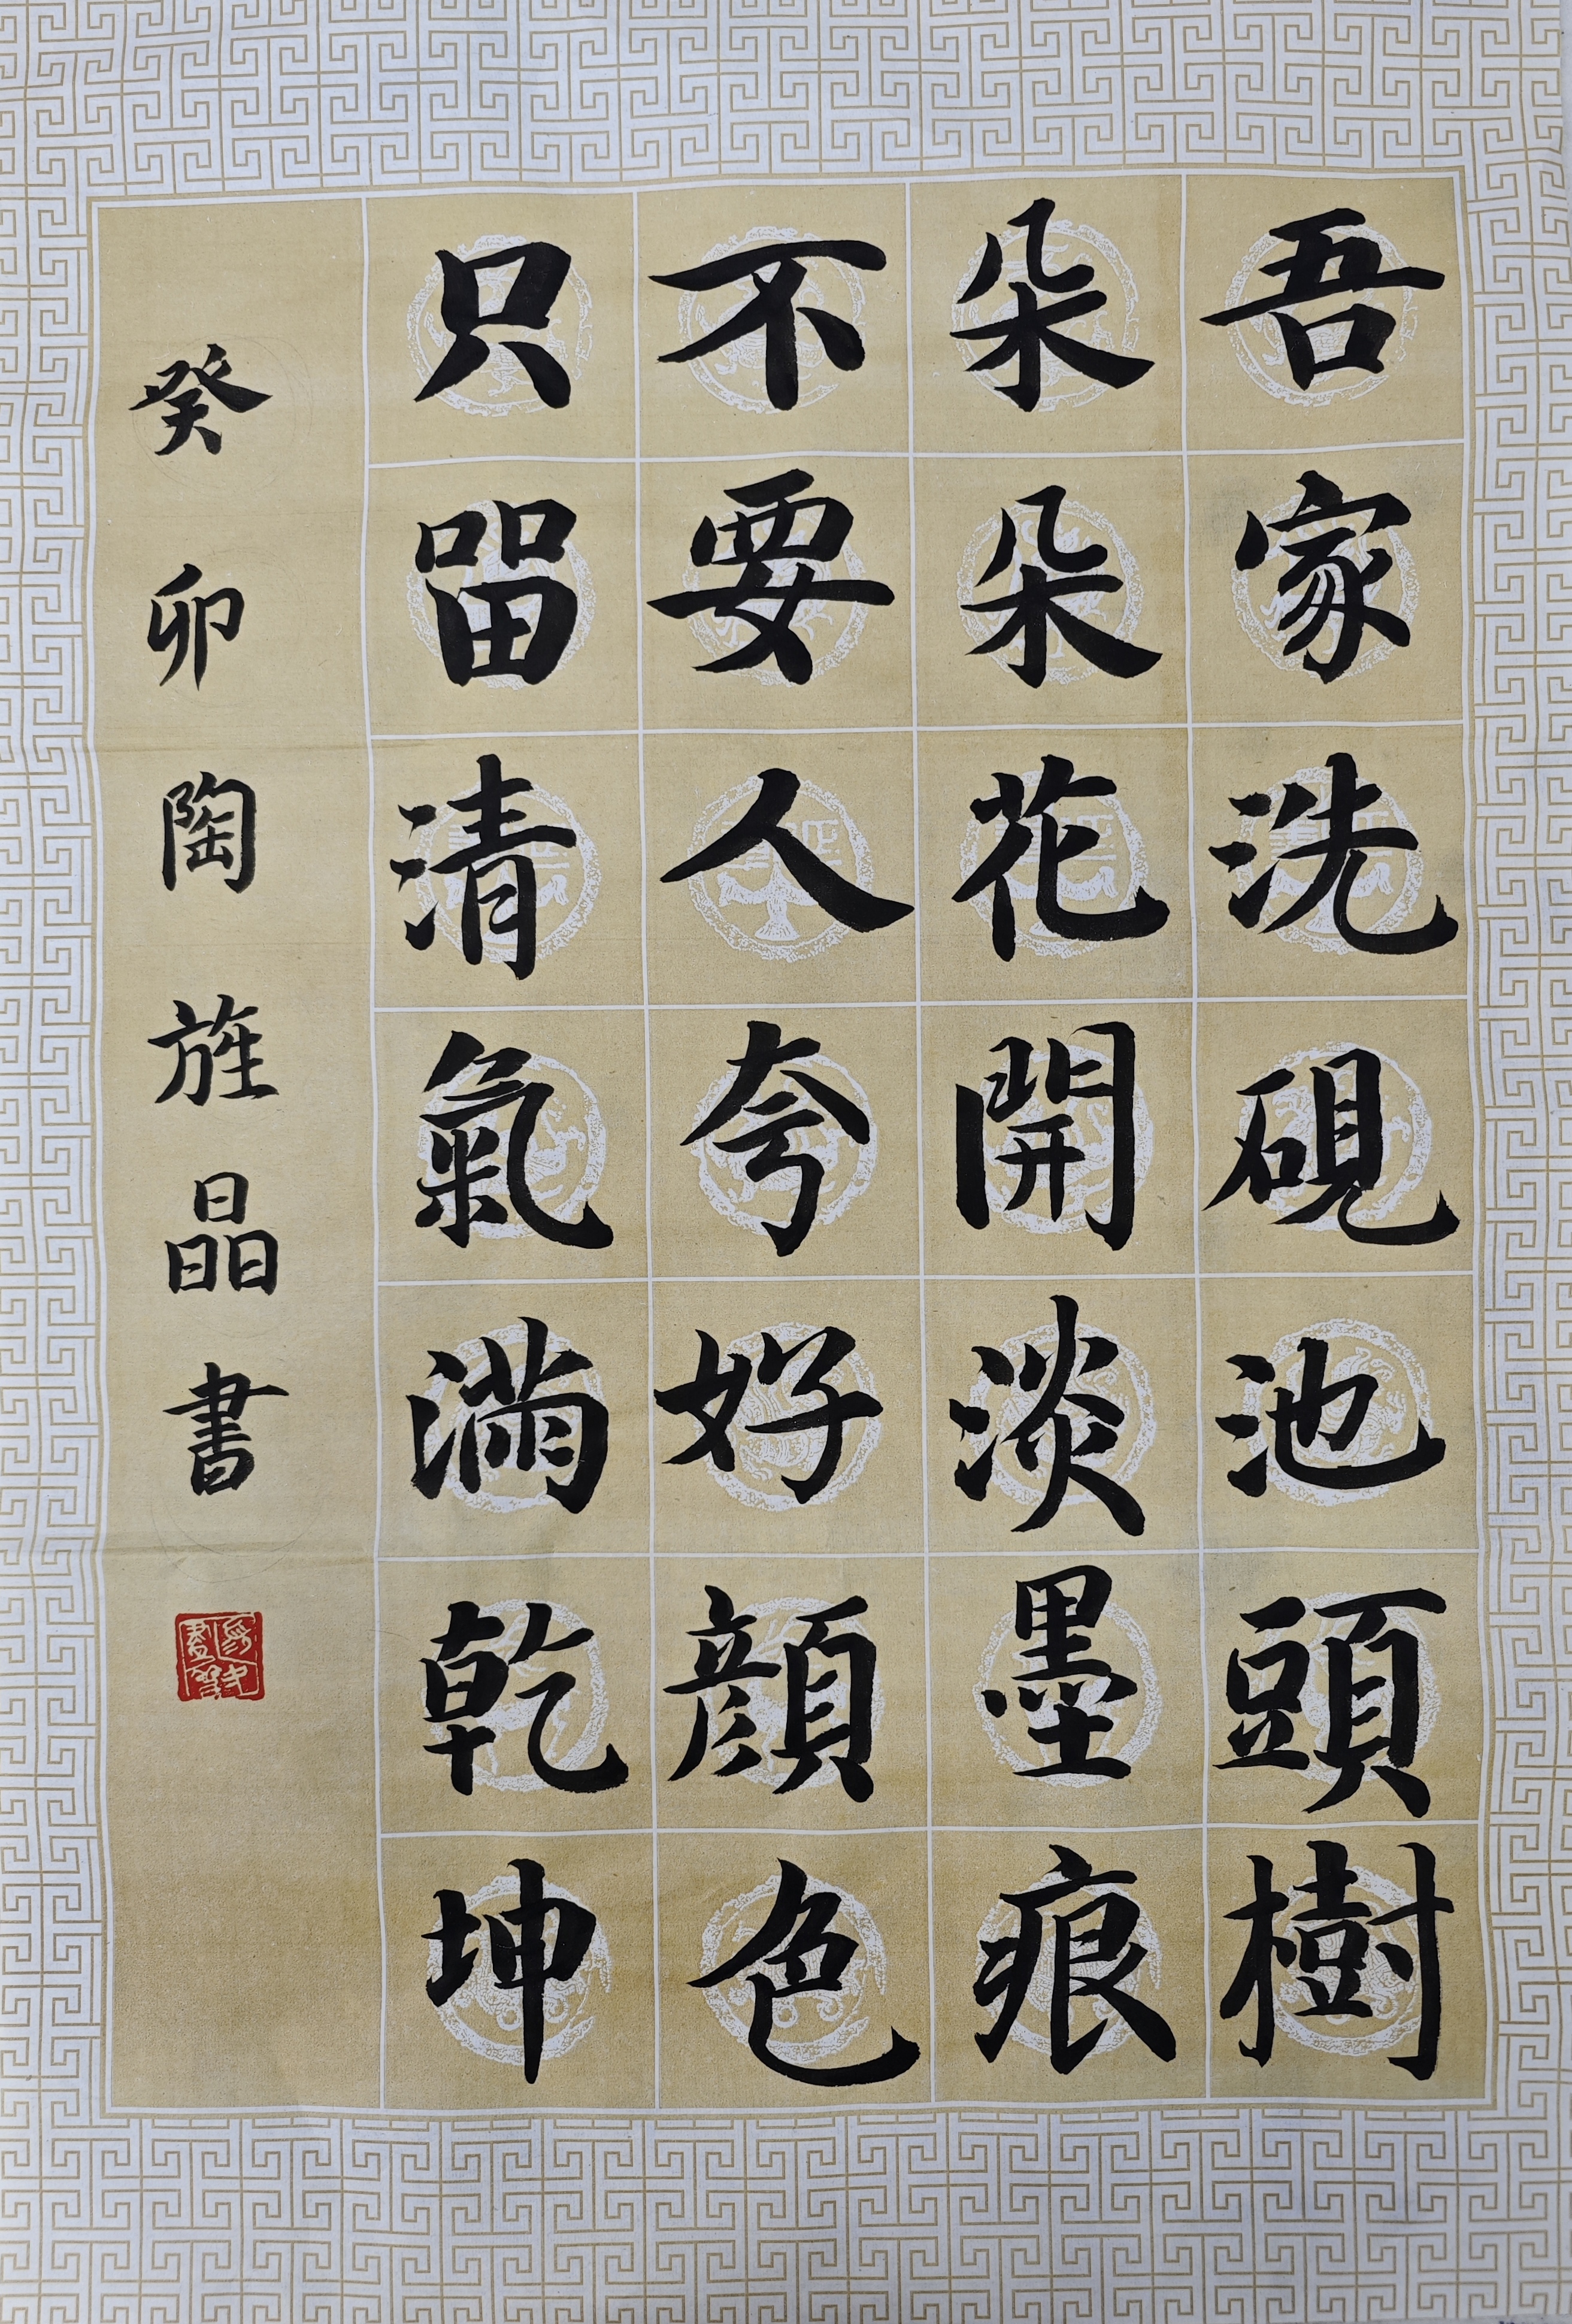 吾家洗硯池頭樹
朵朵花開淡墨痕
不要人夸好顔色
只留清氣滿乾坤
癸卯陶旌晶書